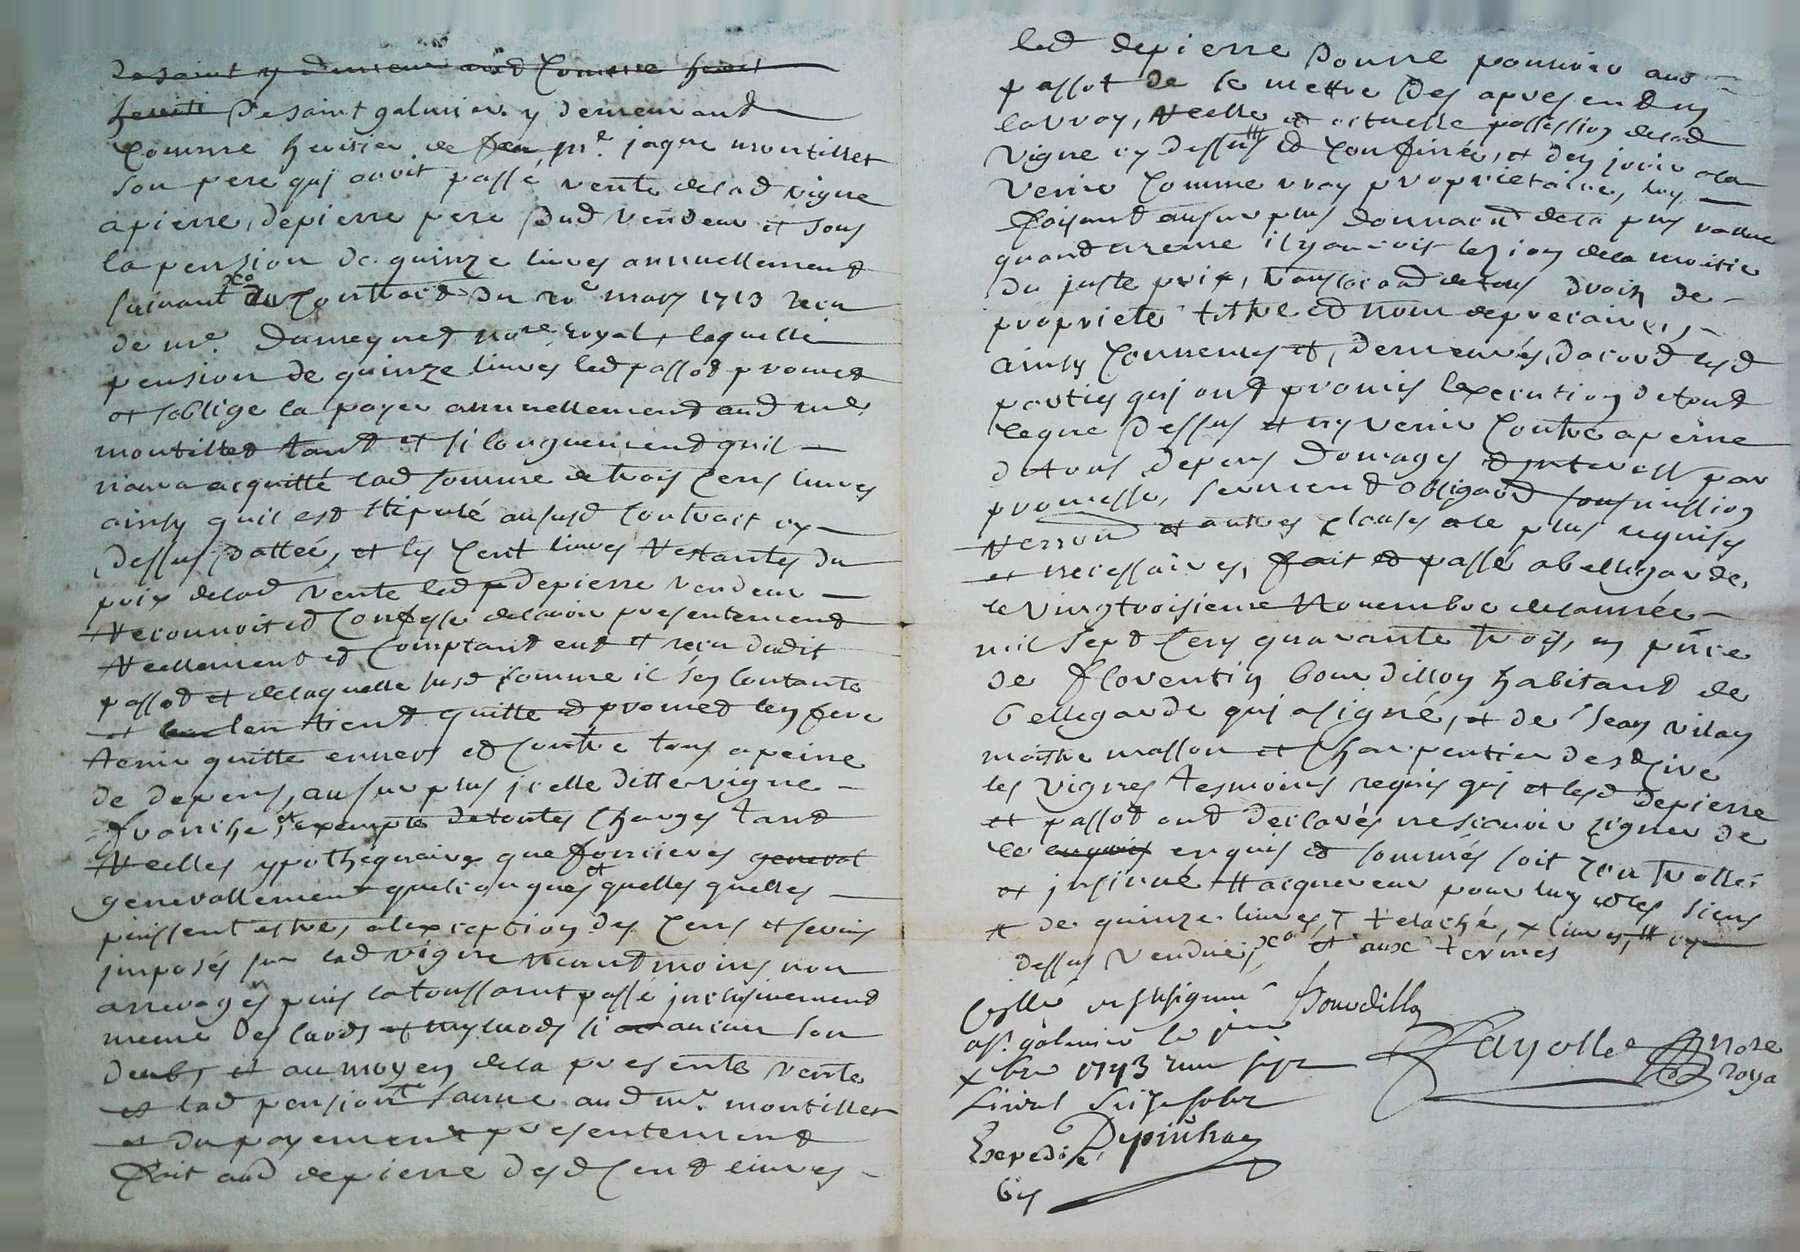 de saint y demeurant aud comme heriti
heriti de saint galmier y demeurant
comme heritier de feu mr. jaque montillet
son pere qui avoit passé vente delad vigne
a pierre depierre pere dud vendeur et sous
la pension de quinze livres annuellement
suivant le contract du xve mars 1713 receu
de mr. Dameynet nore royal, laquelle
pension de quinze livres led passot promet
et soblige la payer annuellement aud mr
montillet tant et si longuement quil
naura acquitté lad somme de trois cens livres
ainsy quil est stipulé aususd contract cy
dessus dattée, et les cent livres restantes du
prix delad vente led depierre vendeur
reconnoit et confesse delavoir presentement
reellement et comptant eut et receu dudit
passot et delaquelle susd somme il sen contante
et len tient quitte et promet len fere
tenir quitte envers et contre tous a peine
de depens, au surplus jcelle ditte vigne
franche et exempte detoutes charges tant
reelles ypothequaires que foncieres general
generallement quelconques et quelles quelles
puissent estre, alexception des cens et servis
jmposés sur lad vigne neantmoins non
arreragés puis latoussaint passé jnclusivement
meme des laods et mylaods si aucun son
deubs, et au moyen dela presente vente
et lad pension sauve aud mr. montillet
et du payement presentement
fait aud depierre desd cent livres
led depierre donne pouvoir aud
passot de se mettre des apresent en
la vray, reelle et actuelle possession delad
vigne cy dessus et confinée, et den jouir ala
venir comme vray proprietaire, luy
faisant au surplus donnation dela plus vallue
quand mesme il y auroit lezion dela moitié
du juste prix, transferand detous droits de
proprieté tittre et nom deprecaire,
ainsy convenus et demeurés dacord lesd
parties qui ont promis lexecution detout
ceque dessus et ny venir contre apeine
detous depens domages et interest par
promesse, serment obligaon sousmission
renon et autres clauses ale plus requises
et necessaires, fait et passé abellegarde,
le vingtroisieme novembre delannée
mil sept cens quarante trois, en pnce
de florentin bourdillon habitant de
bellegarde qui asigné, et de jean vilay
maitre masson et charpentier de st cire
les vignes tesmoins requis qui et lesd depierre
et passot ont declarés nescavoir signer de
ce enquis enquis et sommés soit controllé
et jnsinué # acquereur pour luy et les siens
# de quinze livres, relaché, x livres, # cy
dessus vendue, xo et aux termes
collé et insinué Bourdillon
a st galmier le
xbre 1743 receu sept
livres six sols
Fayolle nore
roya
Expedié
bis